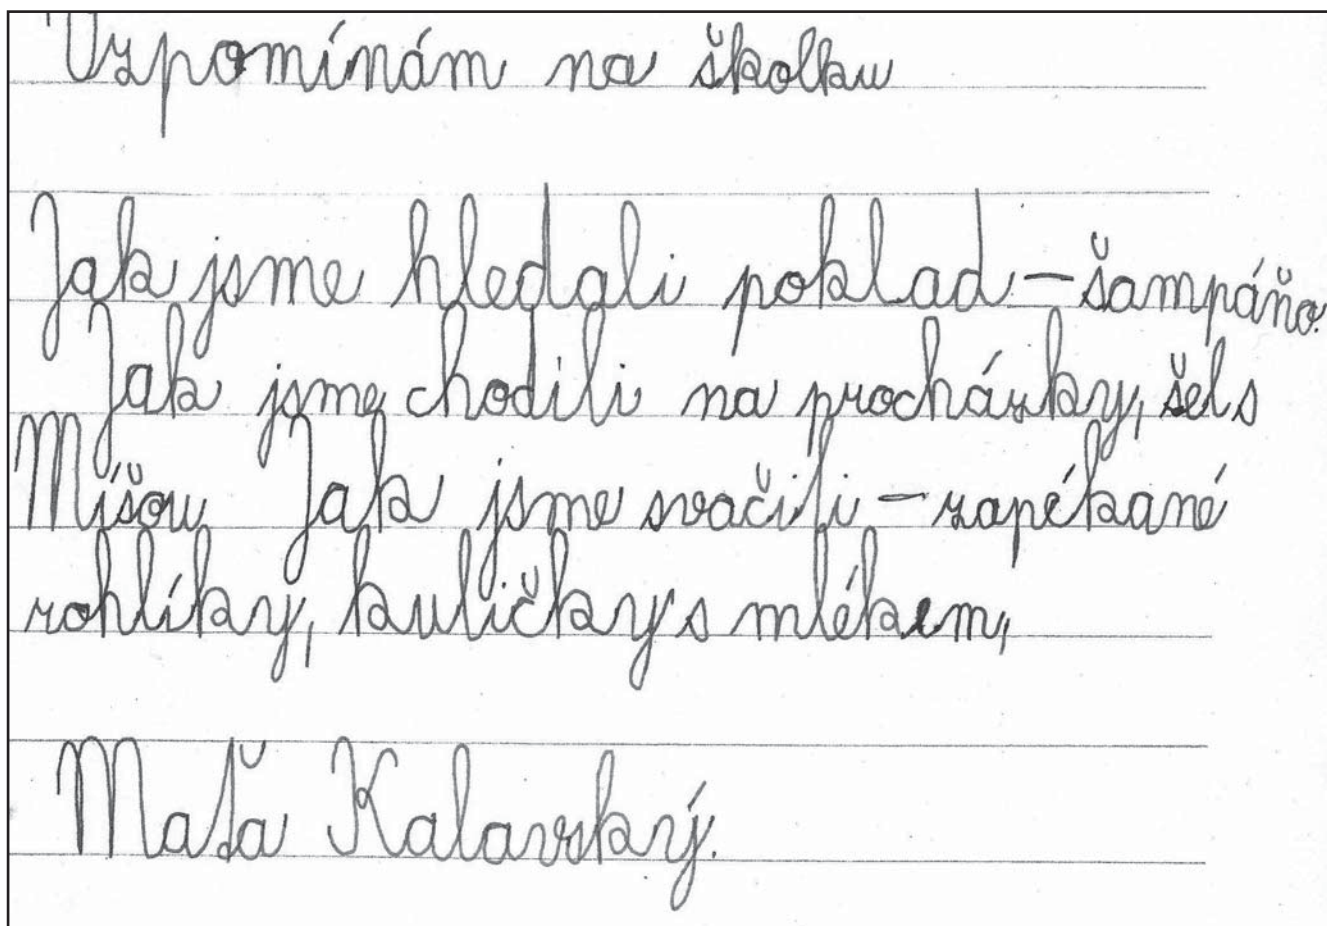 Vzpomínám na školku
Jak jsme hledali poklad – šampáňo.
Jak jsme chodili na procházky, šel s
Míšou Jak jsme svačili – zapékané
rohlíky, kuličky s mlékem,
Maťa Kalavský.